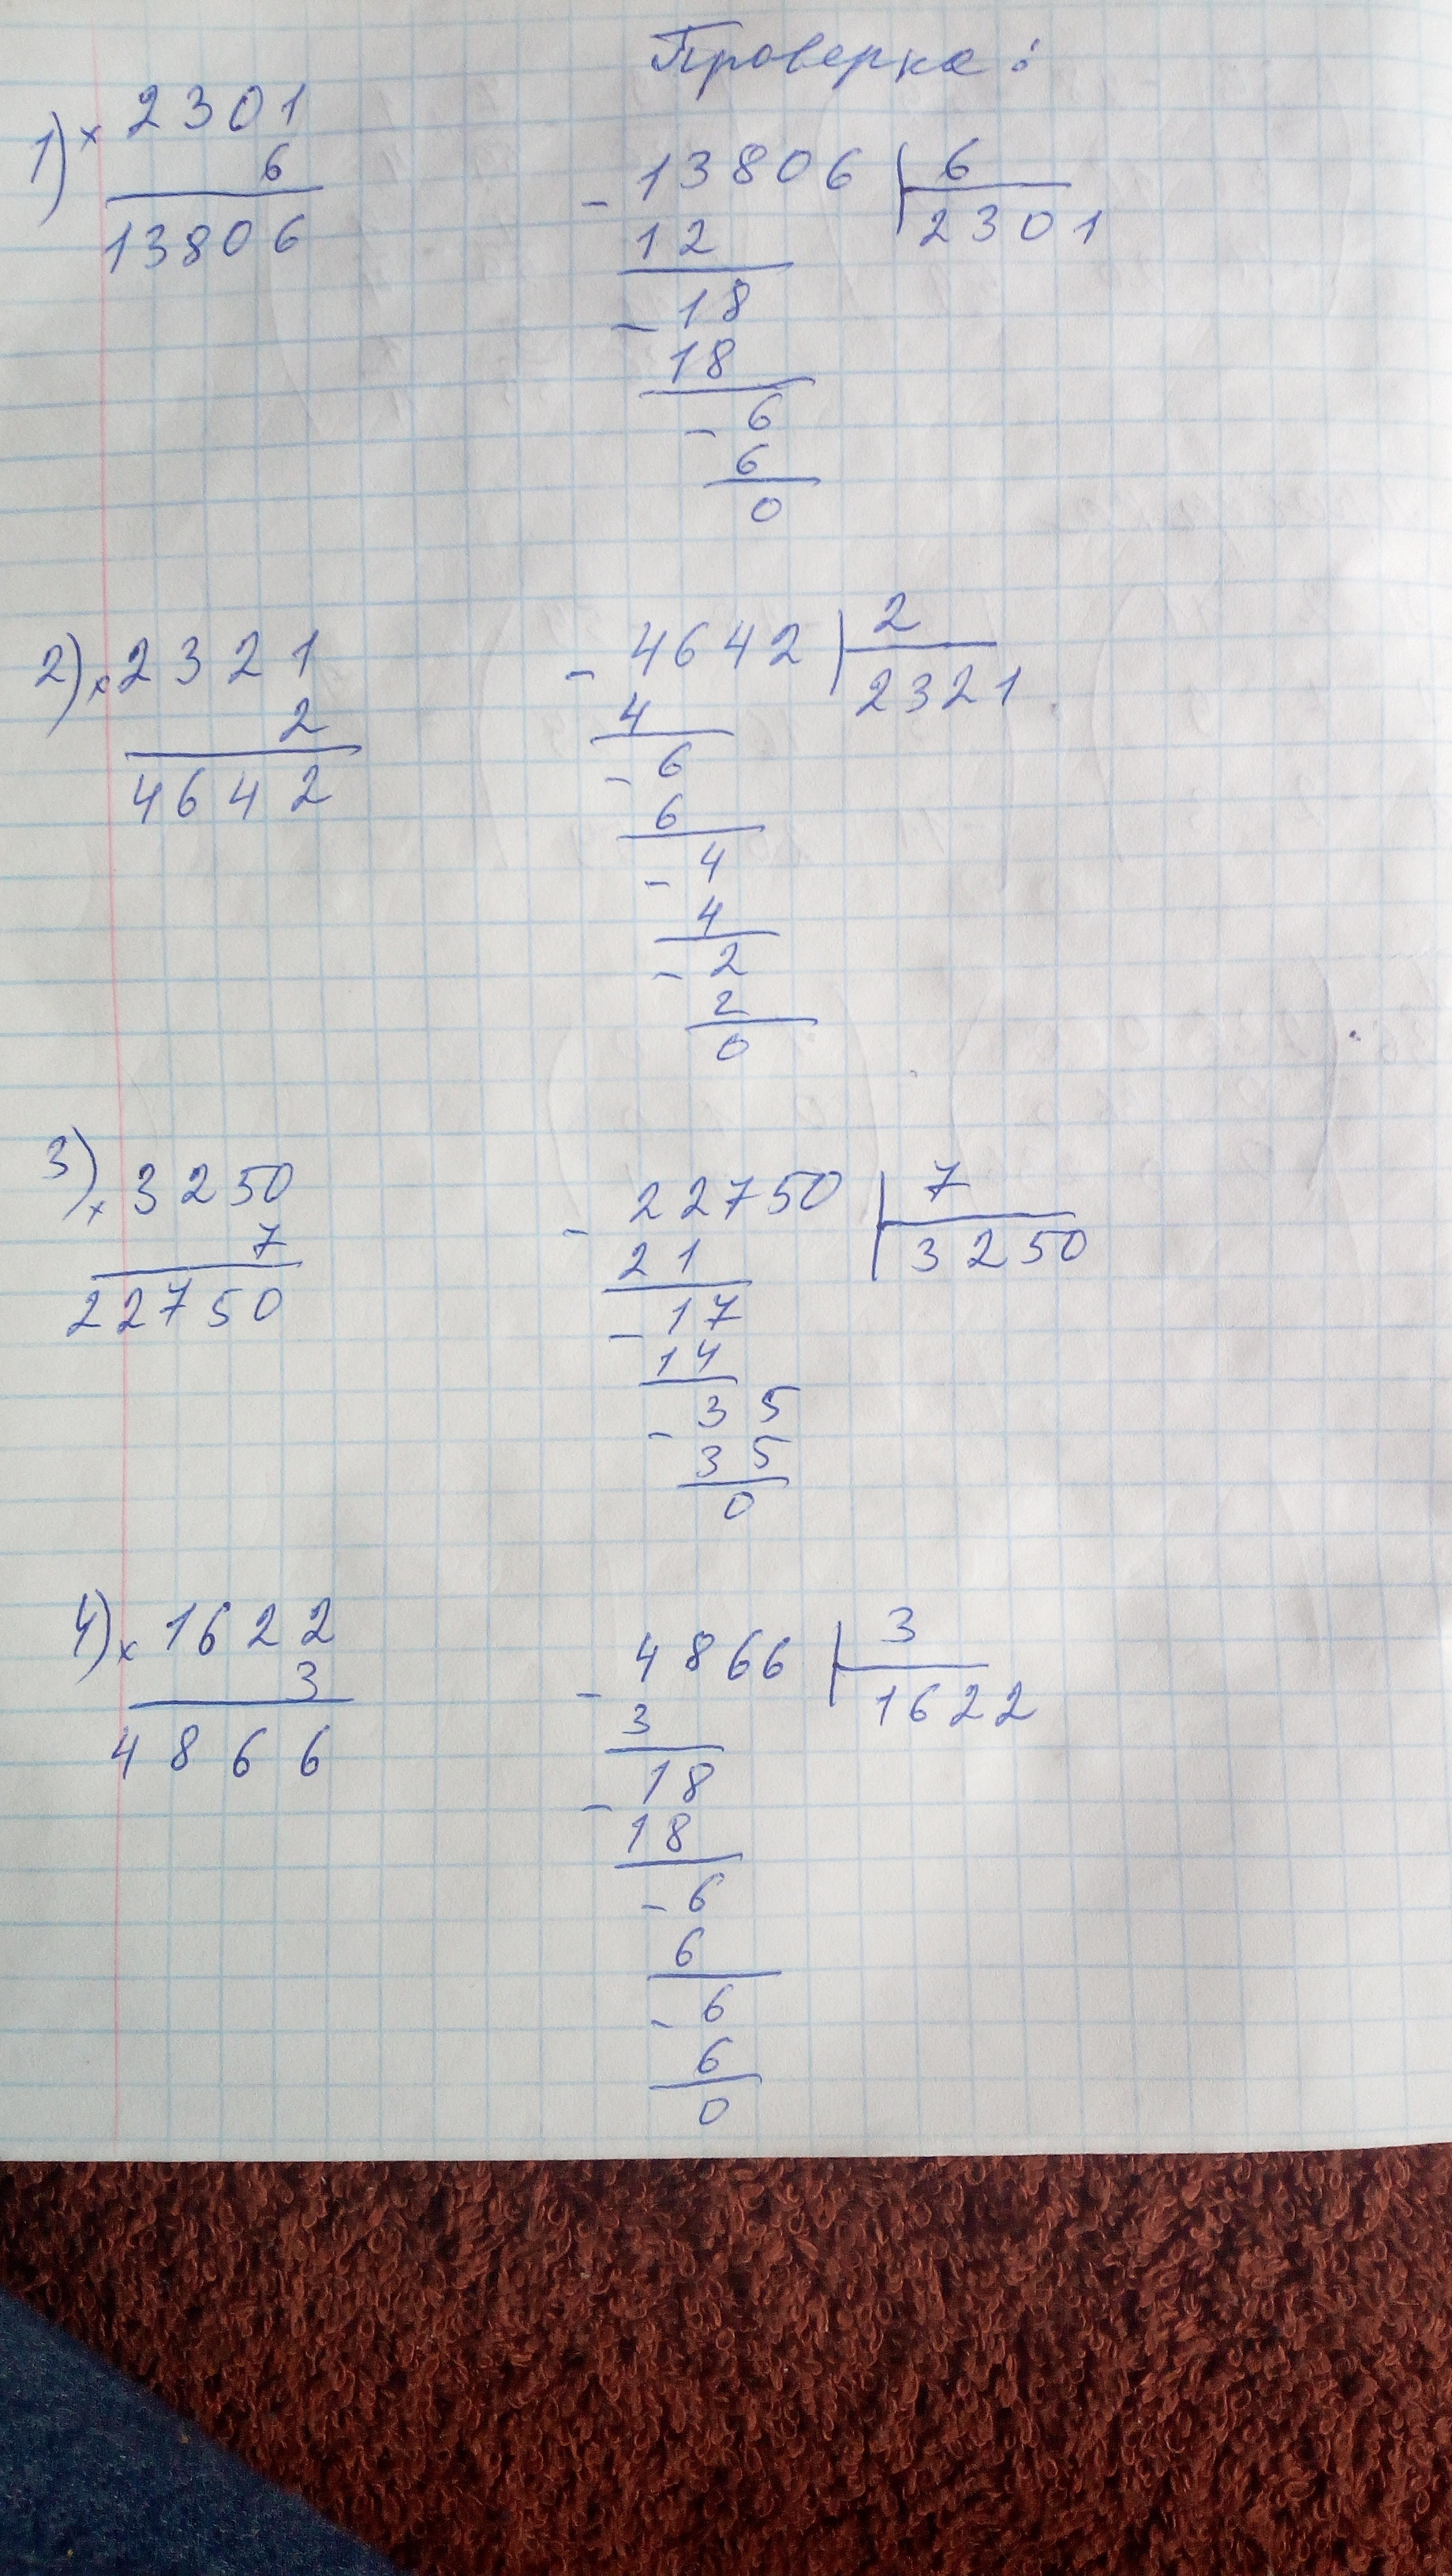 Проверка:
1) × 2301
6
13806
- 13806 | 6
12 2301
- 18
18
- 6
6
0
2) × 2321
2
4642
- 4642 | 2
4 2321
- 6
6
- 4
4
- 2
2
0
3) × 3250
7
22750
- 22750 | 7
21 3250
- 17
14
- 35
35
0
4) × 1622
3
4866
- 4866 | 3
3 1622
- 18
18
- 6
6
- 6
6
0